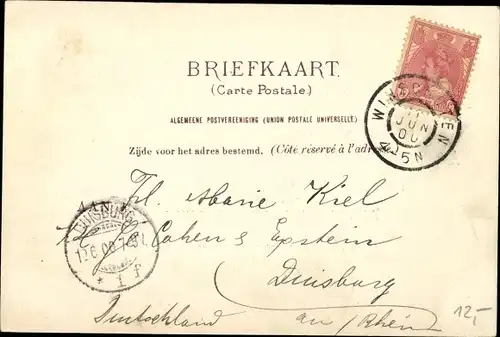 BRIEFKAART.
(Carte Postale.)
ALGEMEENE POSTVEREENIGING (UNION POSTALE UNIVERSELLE)
Zijde voor het adres bestemd. (Côté réservé à l'adresse
11
JUN
00
4-5N
AAN
Marie Kiel
DUISBURG
12 6 00 7-8
* 1 f
Cohen & Epstein
Duisburg
Deutschland an / Rhein
12,-